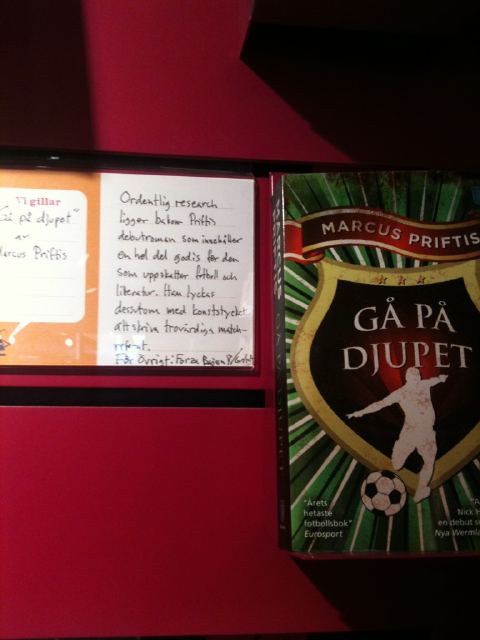 Vi gillar
"Gå på djupet"
av
Marcus Priftis
Ordentlig research
ligger bakom Priftis
debutroman som innehåller
en hel del godis för den
som uppskattar fotboll och
litteratur. Han lyckas
dessutom med konststycket
att skriva trovärdiga match-
referat.
För övrigt: Forza Bajen
MARCUS PRIFTIS
GÅ PÅ
DJUPET
"Årets
hetaste
fotbollsbok"
Eurosport
Nick H
en debut s
Nya Wermla